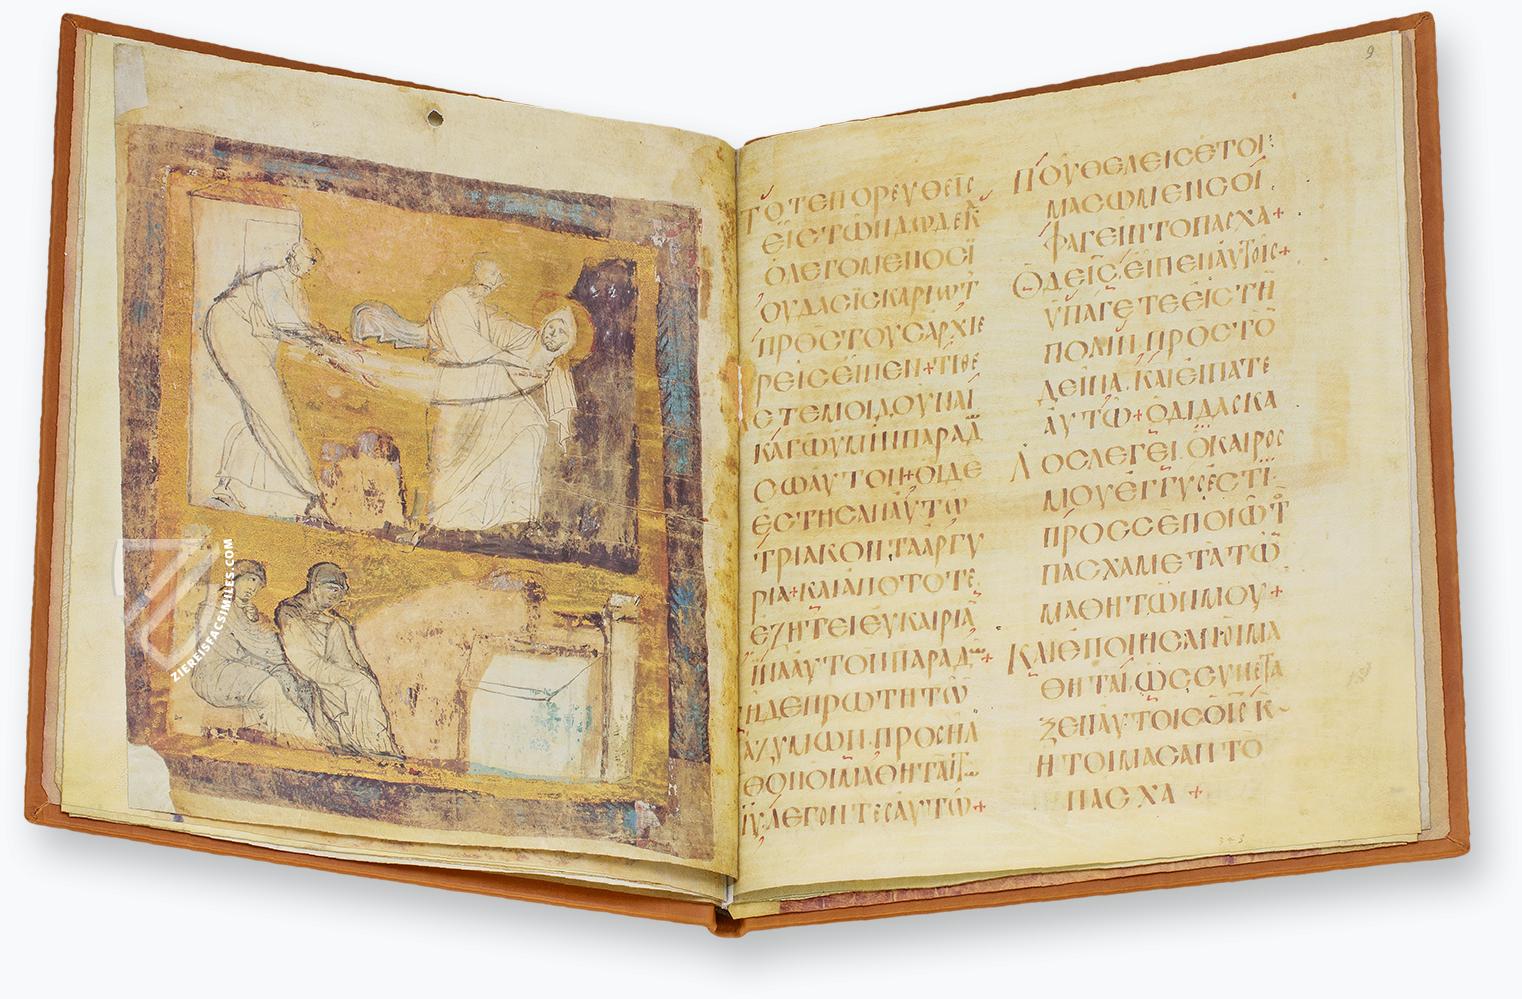 ZIEREISFACSIMILES.COM
ΤΟΤΕΠΟΡΕΥΘΕΙϹ
ΕΙϹΤΩΝΔΩΔΕΚ
ΟΛΕΓΟΜΕΝΟϹΪ
ΟΥΔΑϹΪϹΚΑΡΙΩΤ
ΠΡΟϹΤΟΥϹΑΡΧΙΕ
ΡΕΙϹΕΙΠΕΝ+ΤΙΘΕ
ΕΤΕΜΟΙΔΟΥΝΑΙ
ΚΑΓΩΥΜΙΝΠΑΡΑΔ
ϹΩΑΥΤΟΝ+ΟΙΔΕ
ΕϹΤΗϹΑΝΑΥΤΩ
ΤΡΙΑΚΟΝΤΑΑΡΓΥ
ΡΙΑ+ΚΑΙΑΠΟΤΟΤΕ
ΕΖΗΤΕΙΕΥΚΑΙΡΙΑ
ΪΝΑΑΥΤΟΝΠΑΡΑΔ +
ΗΔΕΠΡΩΤΗΤΩ
ΑΖΥΜΩΝ.ΠΡΟϹΗΛ
ΘΟΝΟΙΜΑΘΗΤΑΙΤ
ΙΥ.ΛΕΓΟΝΤΕϹΑΥΤΩ+
9
ΠΟΥΘΕΛΕΙϹΕΤΟΙ
ΜΑϹΩΜΕΝϹΟΙ
ΦΑΓΕΙΝΤΟΠΑϹΧΑ+
ΟΔΕΙϹ.ΕΙΠΕΝΑΥΤΟΙϹ+
ΥΠΑΓΕΤΕΕΙϹΤΗ
ΠΟΛΙΝ.ΠΡΟϹΤΟ
ΔΕΙΝΑ.ΚΑΙΕΙΠΑΤΕ
ΑΥΤΩ+ΟΔΙΔΑϹΚΑ
ΛΟϹΛΕΓΕΙ.ΟΚΑΙΡΟϹ
ΜΟΥΕΓΓΥϹΕϹΤΙ
ΠΡΟϹϹΕΠΟΙΩΤ
ΠΑϹΧΑΜΕΤΑΤΩ
ΜΑΘΗΤΩΝΜΟΥ+
ΚΑΙΕΠΟΙΗϹΑΝΟΙΜΑ
ΘΗΤΑΙ.ΩϹϹΥΝΕΤΑ
ΞΕΝΑΥΤΟΙϹΟΙϹ Κ
ΗΤΟΙΜΑϹΑΝΤΟ
ΠΑϹΧΑ +